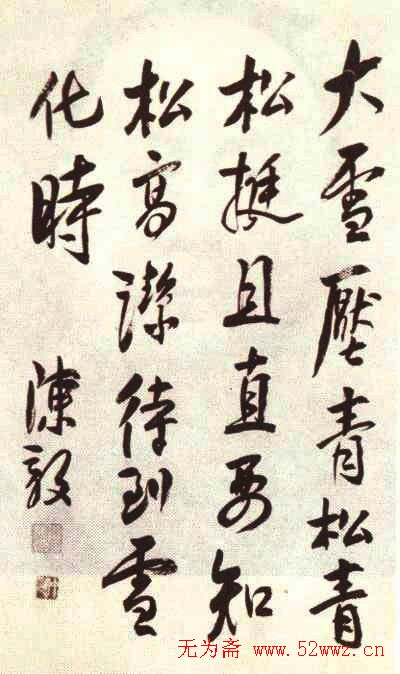 大雪壓青松青
松挺且直要知
松高潔待到雪
化時
陳毅
无为斋 www.52wwz.cn